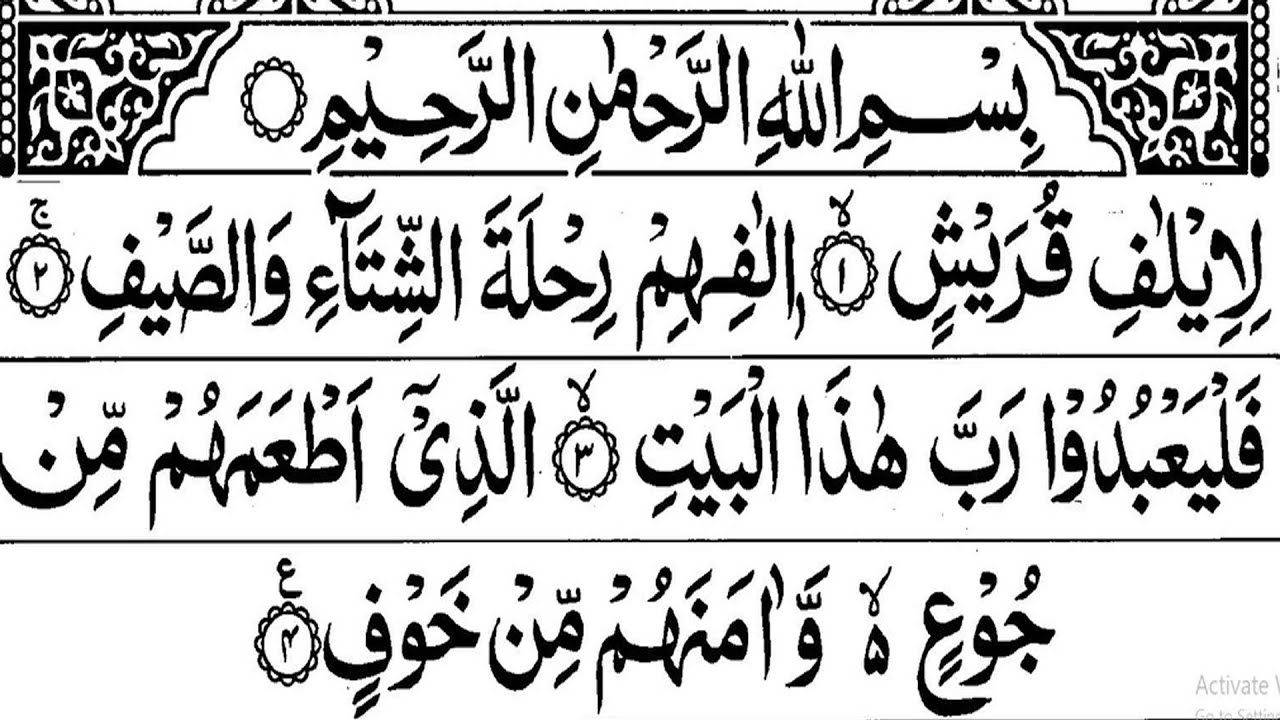 بِسْمِ اللّٰهِ الرَّحْمٰنِ الرَّحِيْمِ
لِاِيْلٰفِ قُرَيْشٍ ۙ﴿۱﴾ اٖلٰفِهِمْ رِحْلَةَ الشِّتَآءِ وَالصَّيْفِ ۚ﴿۲﴾
فَلْيَعْبُدُوْا رَبَّ هٰذَا الْبَيْتِ ۙ﴿۳﴾ الَّذِيْۤ اَطْعَمَهُمْ مِّنْ
جُوْعٍ ۵ۙ وَّاٰمَنَهُمْ مِّنْ خَوْفٍ ﴿۴﴾ ع
Activate W
Go to Setting